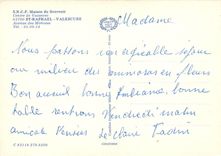 S.N.C.F. Maison du Souvenir
Centre de Vacances
83700 ST-RAPHAËL - VALESCURE
Avenue des Mimosas
Madame
Nous passons un agréable séjour
au milieu des mimosas en fleurs
Bon accueil bonne ambiance, bonne
table rentrons Vendredi matin
amicales Pensées de Claire